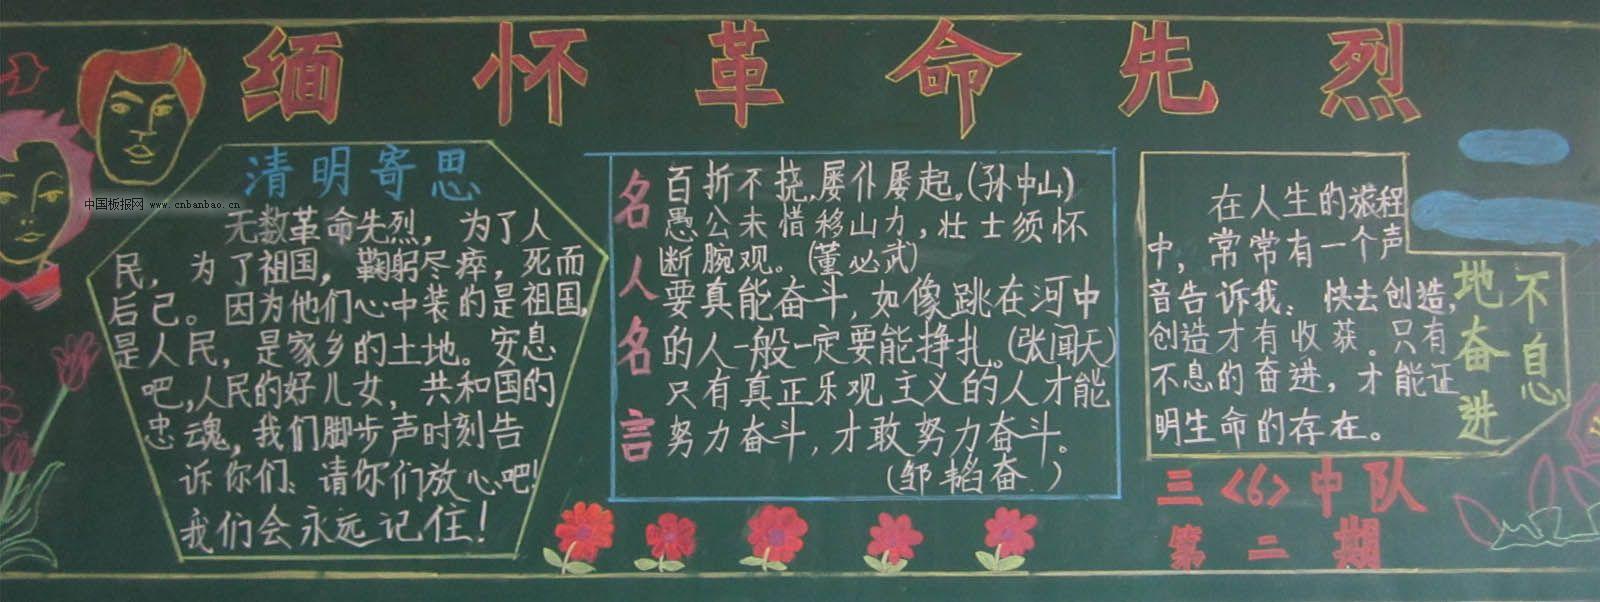 缅怀革命先烈
中国板报网 www.cnbanbao.cn
清明寄思
无数革命先烈，为了人
民，为了祖国，鞠躬尽瘁，死而
后已。因为他们心中装的是祖国，
是人民，是家乡的土地。安息
吧，人民的好儿女，共和国的
忠魂，我们脚步声时刻告
诉你们：请你们放心吧！
我们会永远记住！
名人名言
百折不挠，屡仆屡起。(孙中山)
愚公未惜移山力，壮士须怀
断腕观。(董必武)
要真能奋斗，如像跳在河中
的人一般一定要能挣扎。(张闻天)
只有真正乐观主义的人才能
努力奋斗，才敢努力奋斗。
(邹韬奋.)
在人生的旅程
中，常常有一个声
音告诉我：快去创造，
创造才有收获。只有
不息的奋进，才能证
明生命的存在。
不息
地奋进
三〈6〉中队
第二期